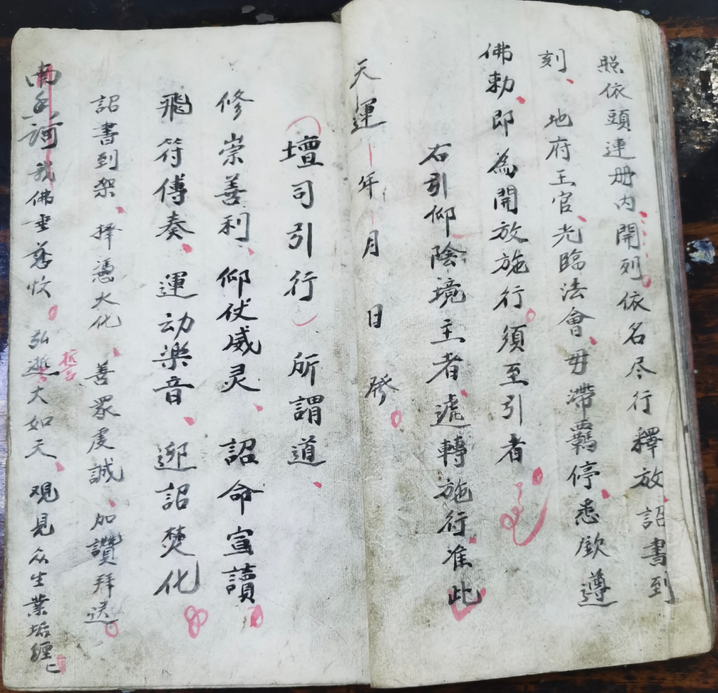 照依頭連册内、開列依名尽行釋放、詔書到
刻、地府王官、光臨法會、毋滯羈停、悉欽遵
佛勅、即為開放施行。須至引者
右引仰陰境主者、遞轉施行准此
天運 年 月 日 發。
壇司引行 所謂道、
修崇善利、仰仗威灵、詔命宣讀
飛符傅奏、運动楽音、迎詔焚化
詔書到案、擇憑火化、善眾虔誠、加讚拜送。
南無訶我佛垂慈憫。弘誓大如天、观見众生業垢纒